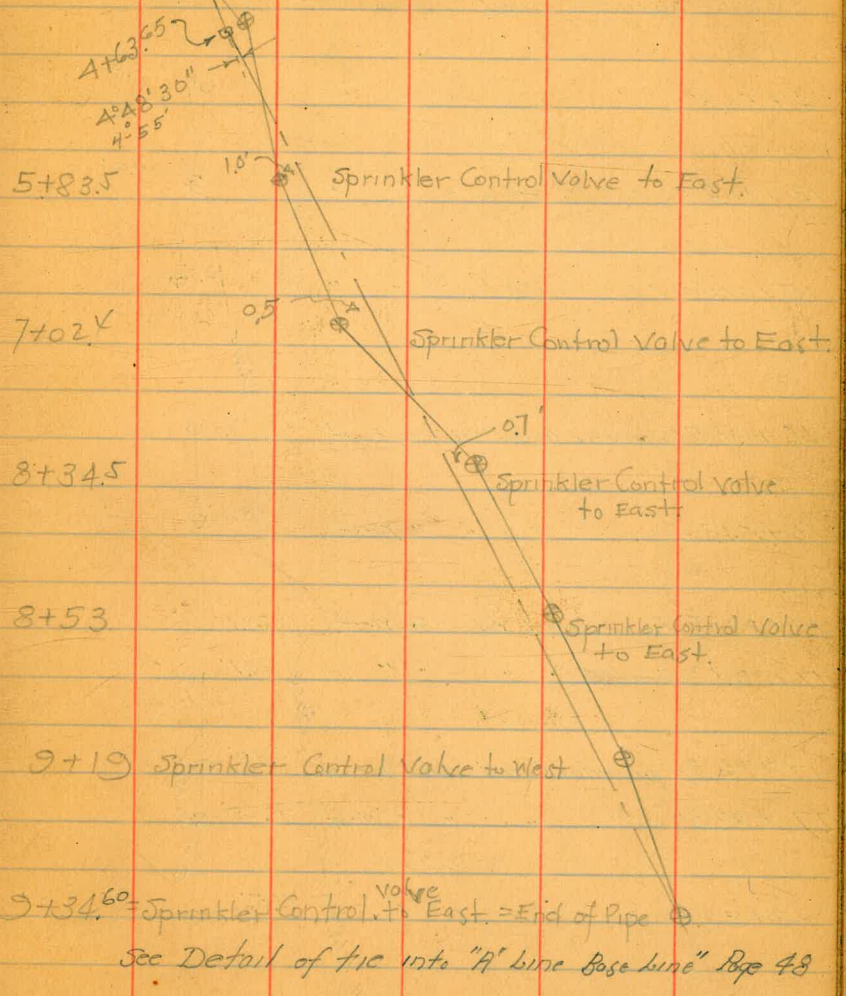 4+63.65
4°48'30"
4°-55'
1.0'
5+83.5 Sprinkler Control Valve to East.
0.5
7+02.4 Sprinkler Control Valve to East.
0.7'
8+34.5 Sprinkler Control Valve
to East.
8+53 Sprinkler Control Valve
to East.
9+19 Sprinkler Control Valve to West
valve
9+34.60 = Sprinkler Control. to East. = End of Pipe
See Detail of tie into "A" Line Base Line" Page 48